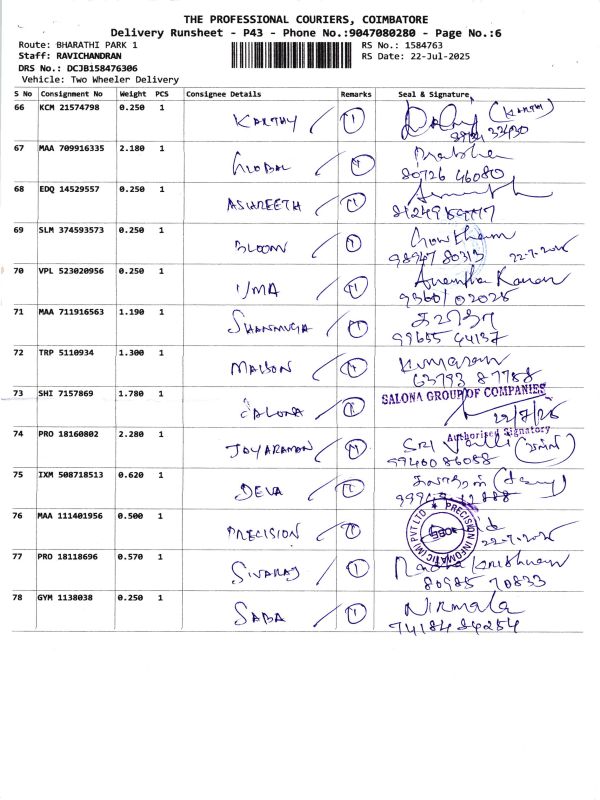 THE PROFESSIONAL COURIERS, COIMBATORE
Delivery Runsheet - P43 - Phone No.:9047080280 - Page No.:6
Route: BHARATHI PARK 1 RS No.: 1584763
Staff: RAVICHANDRAN RS Date: 22-Jul-2025
DRS No.: DCJB158476306
Vehicle: Two Wheeler Delivery
S No Consignment No Weight PCS Consignee Details Remarks Seal & Signature
66 KCM 21574798 0.250 1 KARTHY 1 (Karthy)
33430
67 MAA 709916335 2.180 1 GLOBAL Prabhu
80726 46080
68 EDQ 14529557 0.250 1 ASHREETH
69 SLM 374593573 0.250 1 BLOOM Gowtham
98947 80313 22-7-2025
70 VPL 523020956 0.250 1 UMA Anantha Kanan
93601 02025
71 MAA 711916563 1.190 1 SHANMUGA
99655 44137
72 TRP 5110934 1.300 1 MAISON Kumaran
63793 87788
73 SHI 7157869 1.780 1 SALONA SALONA GROUP OF COMPANIES
22/7/25
Authorised Signatory
74 PRO 18160802 2.280 1 JAYARAMAN Sri Valli
99400 86088
75 IXM 508718513 0.620 1 DEVA
76 MAA 111401956 0.500 1 PRECISION PRECISION INFOMATIC (M) PVT LTD
22-7-2025
77 PRO 18118696 0.570 1 SIVARAJ Radha Krishnan
80985 70833
78 GYM 1138038 0.250 1 SABA Nirmala
74184 84254